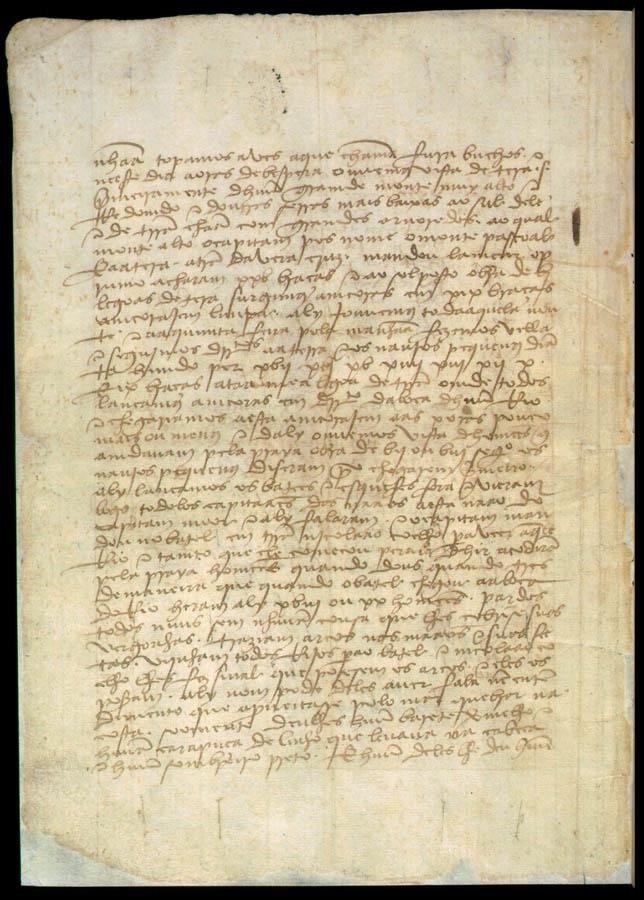 nhaã topamos aves aque chamã fura buchos. e
neeste dia aoras de bespera ouvemos vista de terra .s.
primeiramente dhuũ grande monte muy alto e
Redondo e doutras serras mais baixas ao sul dele
e de terra chaã com grandes arvoredos. ao qual
monte alto ocapitam pos nome omonte pascoal e
aatera. atera davera cruz. mandou lamçar opru
mo acharam xxb braças e ao sol posto obra de bj
legoas de tera surgimos amcoras em xix braças
amcorajem limpa. aly jouvemos toda aquela nou
te. e aaquimta feira pola manhaã fezemos vella
e seguimos dr.tos aaterra e os navios pequenos diã
te himdo per xbij xbj xb xiiij xiij xij x
e ix braças ataa mea legoa de terra omde todos
lançamos amcoras em dr.to daboca dhuũ Rio
e chegariamos aesta amcorajem aas x oras pouco
mais ou menos e daly ouvemos vista dhomeẽs q̃
amdavam pela praya obra de bij ou biij seg.o os
navios pequenos diseram por chegarem primeiro.
aly lançamos os batees e esquifes fora e vieram
logo todolos capitaães das naaos aesta naao do
capitam moor e aly falaram. e ocapitam man
dou no batel em terra nicolaao coelho pera veer aqle
Rio e tamto que ele começou pera la dhir acodirã
pela praya homeẽs quando dous quando tres
demaneira que quando obatel chegou aaboca
do Rio heram aly xbiij ou xx homeẽs pardos
todos nuus sem nhuũa cousa que lhes cobrise suas
vergonhas. traziam arcos nas maãos e suas see
tas. vijnham todos Rijos pera obatel e nicolaao co
elho lhes fez sinal que posesem os arcos. e eles os
poseram. aly nom pode deles aver fala nẽ entẽ
dimento que aproveitase polo mar quebrar na
costa. soomente deulhes huũ barete vermelho e
huũa carapuça de linho que levava na cabeça
e huũ sombreiro preto. E huũ deles lhe deu huũ